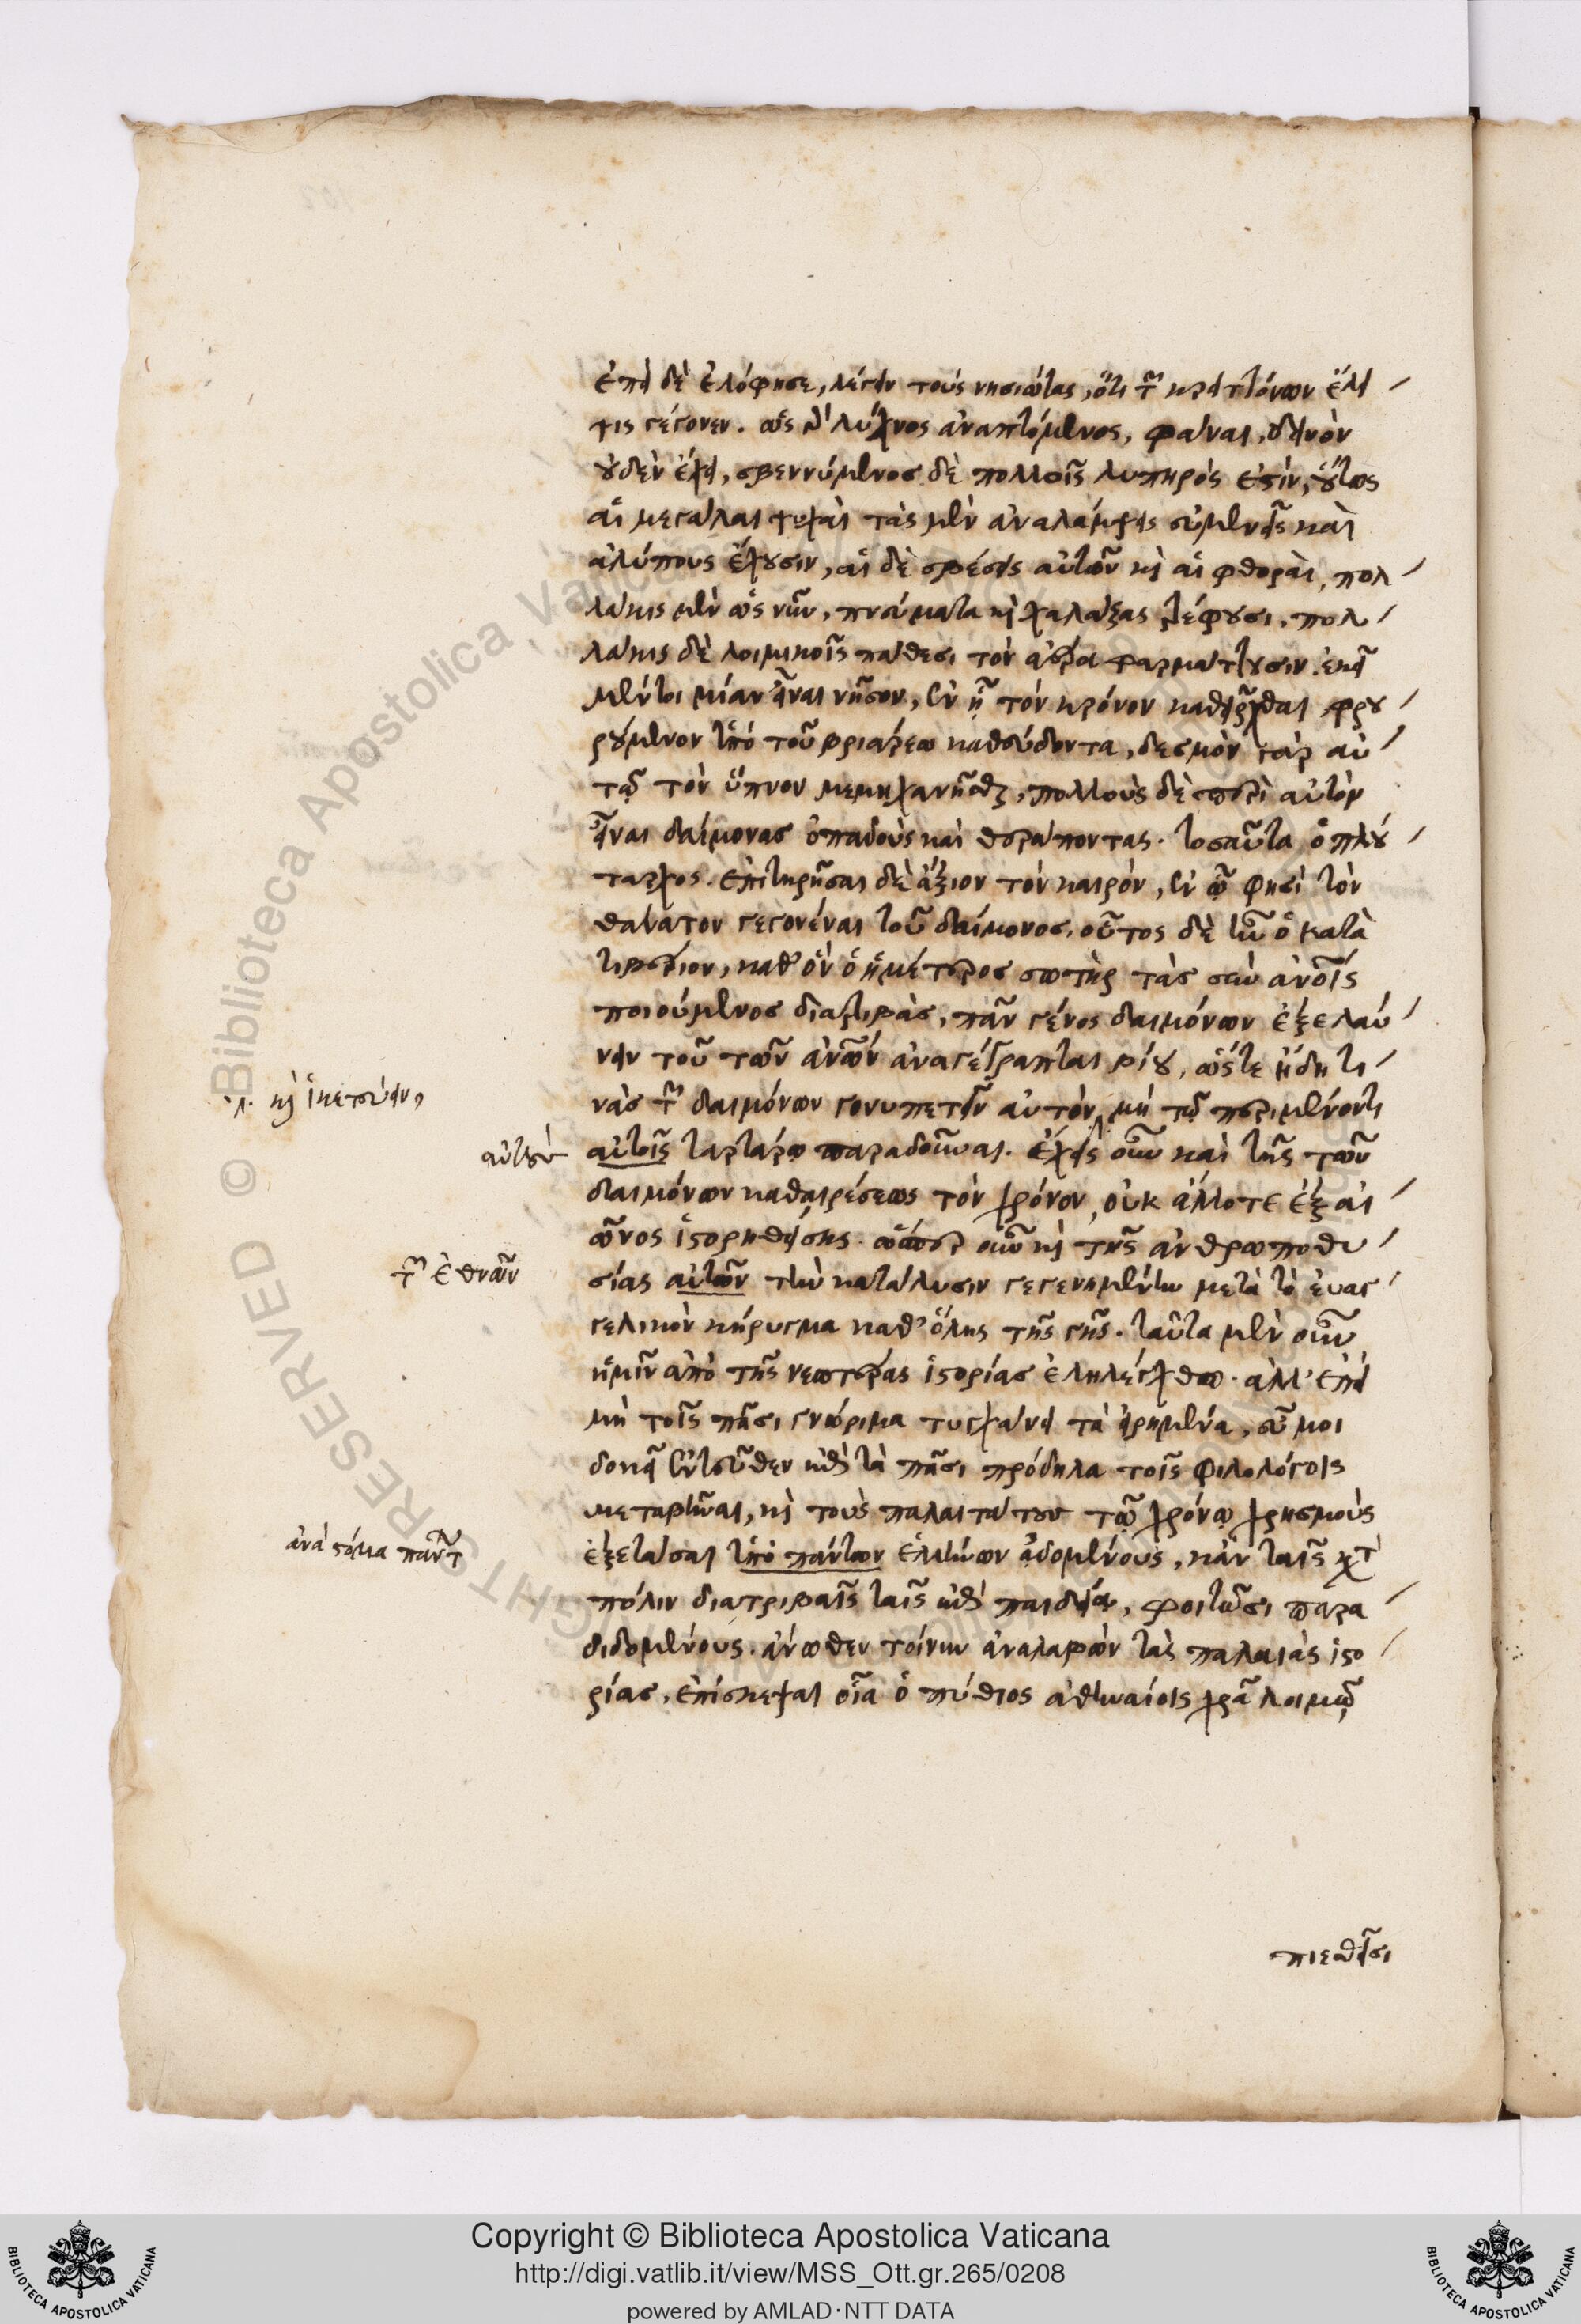 ἐπεὶ δὲ ἐλόφησε, λέγειν τοὺς νησιώτας, ὅτι τῶν κρειττόνων ἔκλει
ψις γέγονεν. ὡς γὰρ λύχνος ἀναπτόμενος, φάναι, δεινὸν
οὐδὲν ἔχει, σβεννύμενος δὲ πολλοῖς λυπηρός ἐστιν, οὕτως
αἱ μεγάλαι ψυχαὶ τὰς μὲν ἀναλάμψεις εὐμενεῖς καὶ
ἀλύπους ἔχουσιν, αἱ δὲ σβέσεις αὐτῶν καὶ αἱ φθοραὶ, πολ
λάκις μὲν ὡς νῦν, πνεύματα καὶ χαλάζας τρέφουσι, πολ
λάκις δὲ λοιμικοῖς πάθεσι τὸν ἀέρα φαρμάττουσιν. ἐκεῖ
μέντοι μίαν εἶναι νῆσον, ἐν ᾗ τὸν κρόνον καθεῖρχθαι φρου
ρούμενον ὑπὸ τοῦ βριάρεω καθεύδοντα, δεσμὸν γὰρ αὐ
τῷ τὸν ὕπνον μεμηχανῆσθαι, πολλοὺς δὲ περὶ αὐτὸν
εἶναι δαίμονας ὀπαδοὺς καὶ θεράποντας. τοσαῦτα ὁ πλού
ταρχος. ἐπιτηρῆσαι δὲ ἄξιον τὸν καιρὸν, ἐν ᾧ φησὶ τὸν
θάνατον γεγονέναι τοῦ δαίμονος. οὗτος δὲ ἦν ὁ κατὰ
τιβέριον, καθ' ὃν ὁ ἡμέτερος σωτὴρ τὰς σὺν ἀνοις
ποιούμενος διατριβὰς, πᾶν γένος δαιμόνων ἐξελαύ
νειν τοῦ τῶν ἀνων ἀναγέγραπται βίου, ὥστε ἤδη τι
νὰς τῶν δαιμόνων γονυπετεῖν αὐτὸν, μὴ τῷ περιμένοντι
λ. καὶ ἱκετεύειν
αὐτοῖς ταρτάρῳ παραδοῦναι. ἔχεις οὖν καὶ τῆς τῶν
αὐτοὺς
δαιμόνων καθαιρέσεως τὸν χρόνον, οὐκ ἄλλοτε ἐξ αἰ
ῶνος ἱστορηθείσης. ὥσπερ οὖν καὶ τῆς ἀνθρωποθυ
σίας αὐτῶν τὴν κατάλυσιν γεγενημένην μετὰ τὸ εὐαγ
τῶν ἐθνῶν
γελικὸν κήρυγμα καθ' ὅλης τῆς γῆς. ταῦτα μὲν οὖν
ἡμῖν ἀπὸ τῆς νεωτέρας ἱστορίας ἐληλέγχθω. ἀλλ' ἐπεὶ
μὴ τοῖς πᾶσι γνώριμα τυγχάνει τὰ εἰρημένα, εὖ μοι
δοκεῖ ἐντεῦθεν ἐπὶ τὰ πᾶσι πρόδηλα τοῖς φιλολόγοις
μεταβῆναι, καὶ τοὺς παλαιτάτους τῷ χρόνῳ χρησμοὺς
ἐξετάσαι ὑπὸ πάντων ἑλλήνων ᾀδομένους, κἀν ταῖς κατὰ
ἀνὰ στόμα πάντων
πόλιν διατριβαῖς ταῖς ἐπὶ παιδείᾳ, φοιτῶσι παρα
διδομένους. ἄνωθεν τοίνυν ἀναλαβὼν τὰς παλαιὰς ἱστο
ρίας, ἐπίσκεψαι οἷα ὁ πύθιος ἀθηναίοις χρᾷ λοιμῷ
πιεσθεῖσι
Copyright © Biblioteca Apostolica Vaticana
http://digi.vatlib.it/view/MSS_Ott.gr.265/0208
powered by AMLAD·NTT DATA